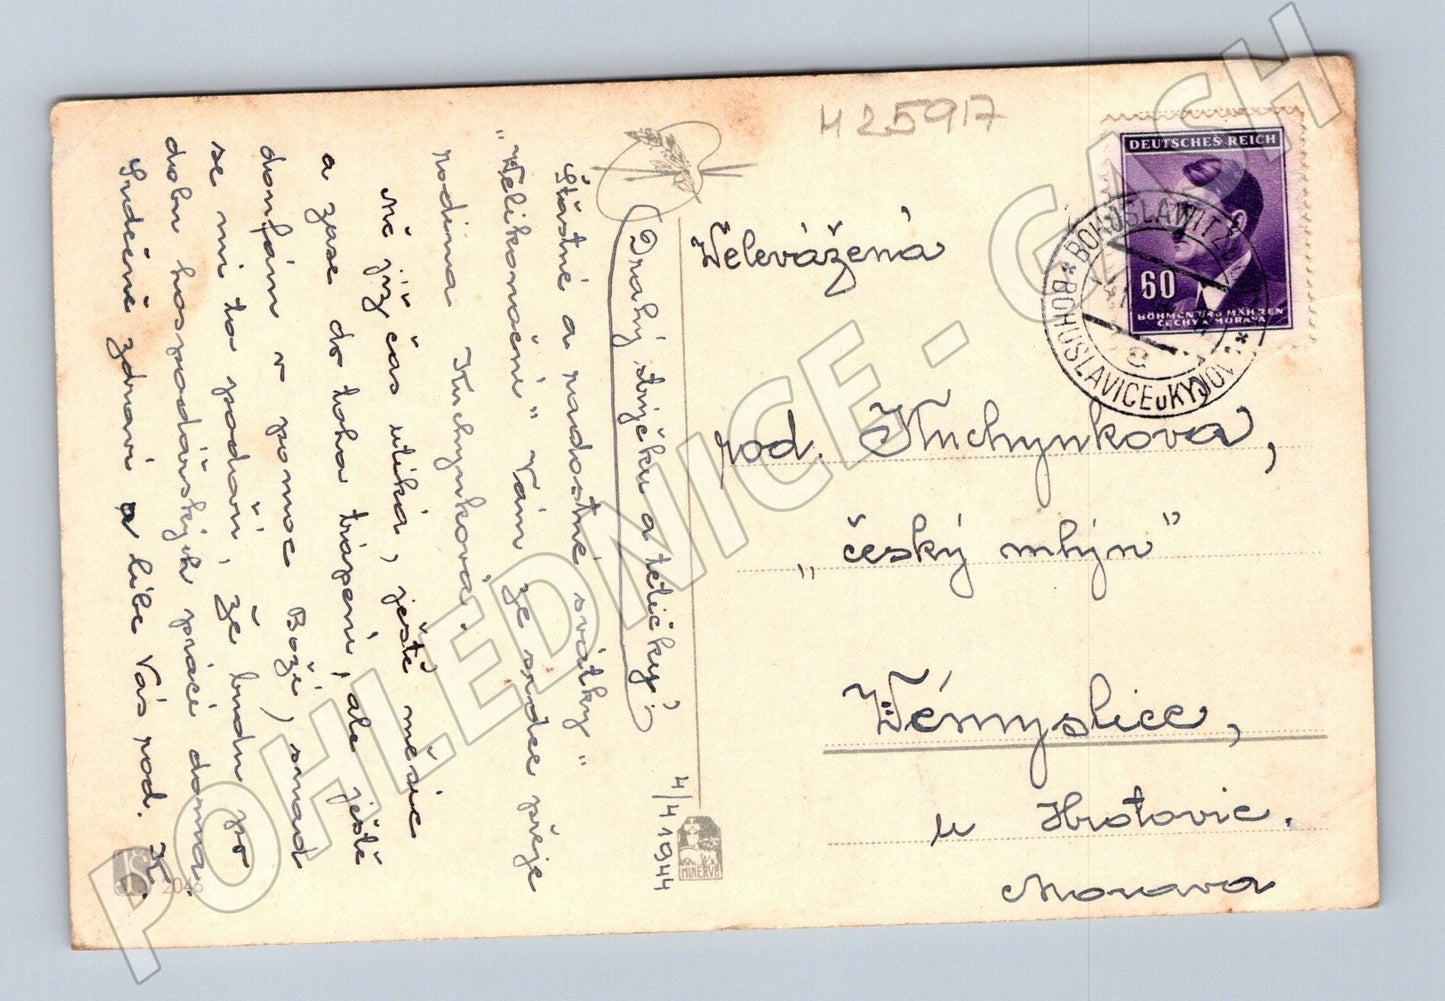 H25917
DEUTSCHES REICH
60
BÖHMEN UND MÄHREN
ČECHY A MORAVA
BOHUSLAWITZ
BOHUSLAVICE u KYJOVA
Velevážená
rod. Kuchynkova,
„český mlýn"
Vémyslice,
u Hrotovic.
Morava
4/4 1944
Drahý strýčku a tetičky!
Šťastné a radostné svátky"
"Velikonoční" Vám ze srdce přeje
rodina Kuchynková.
Než již čas utíká, ještě měsíc
a zase do toho trápení, ale ještě
doufám v pomoc Boží, snad
se mi to podaří, že budu po
dobu hospodářských prácí doma.
Srdečně zdraví a líbe Vás rod. K.
MINERVA
2046
POHLEDNICE - GASH